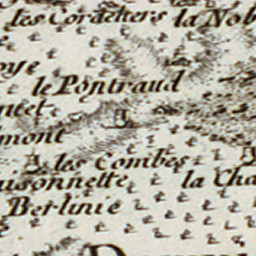 les Cordeliers la Nob
oye
le Pontraud
mont
les Combes
isonnette la Cha
Berlinie